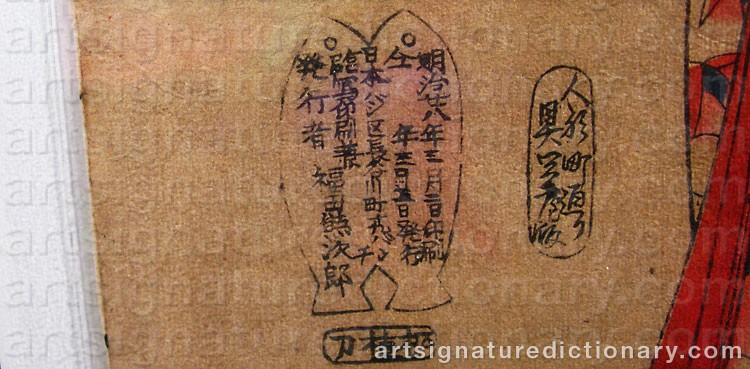 人形町通り
具足屋版
明治廿八年三月二日印刷
仝 年三月五日発行
日本バシ区長谷川町十九バンチ
臨写印刷兼
発行者 福田熊次郎
artsignaturedictionary.com